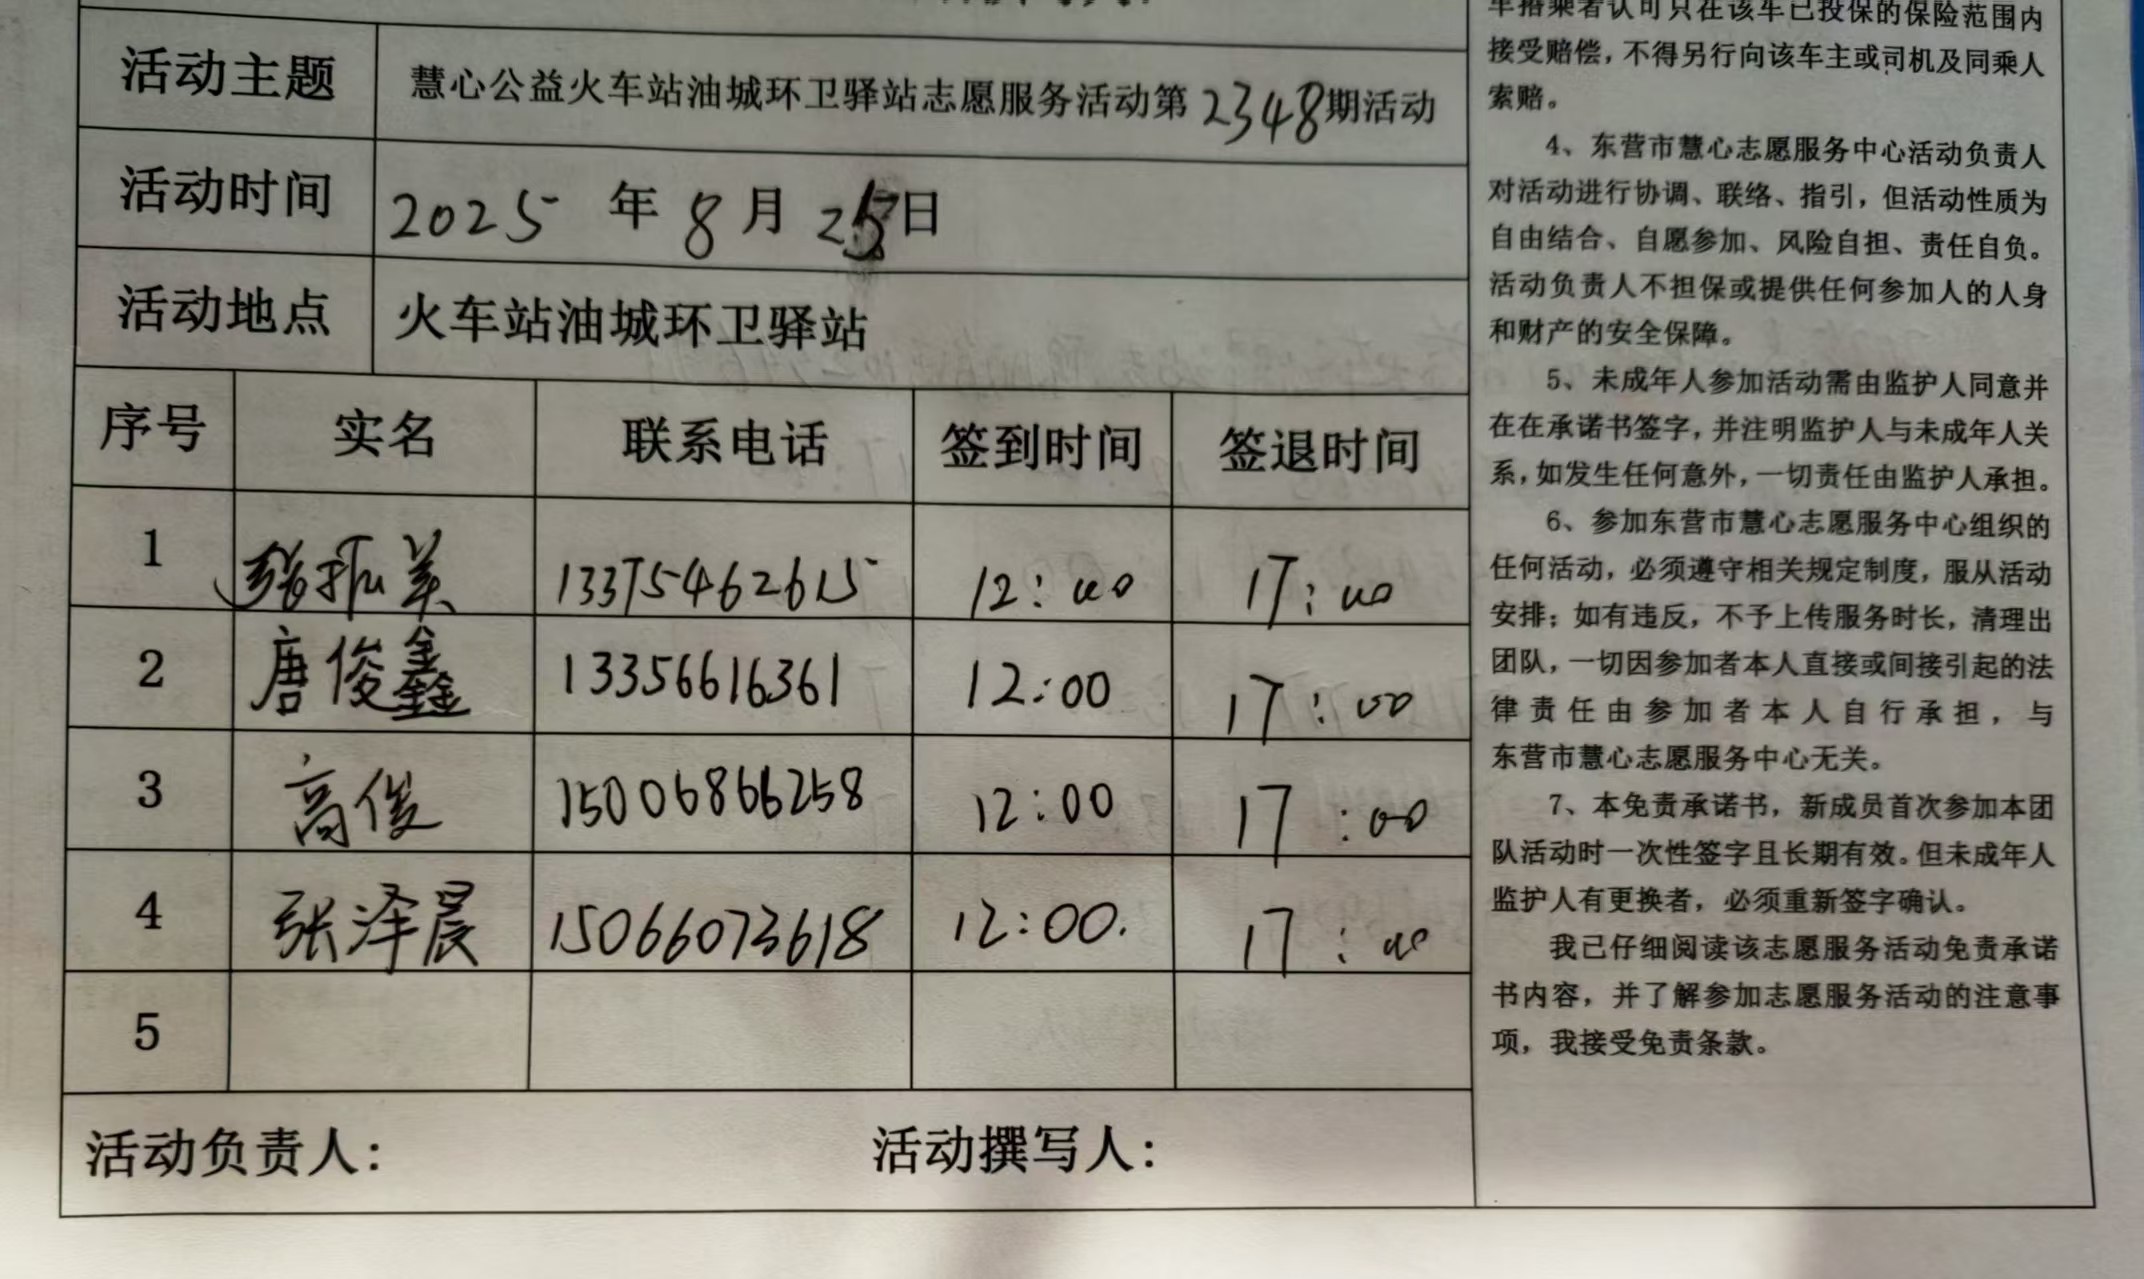 活动主题 慧心公益火车站油城环卫驿站志愿服务活动第2348期活动
活动时间 2025年8月2日
活动地点 火车站油城环卫驿站
序号 实名 联系电话 签到时间 签退时间
1 张振美 13375462615 12:00 17:00
2 唐俊鑫 13356616361 12:00 17:00
3 高俊 15006866258 12:00 17:00
4 张泽晨 15066073618 12:00. 17:00
5
活动负责人： 活动撰写人：
车搭乘者认可只在该车已投保的保险范围内
接受赔偿，不得另行向该车主或司机及同乘人
索赔。
4、东营市慧心志愿服务中心活动负责人
对活动进行协调、联络、指引，但活动性质为
自由结合、自愿参加、风险自担、责任自负。
活动负责人不担保或提供任何参加人的人身
和财产的安全保障。
5、未成年人参加活动需由监护人同意并
在在承诺书签字，并注明监护人与未成年人关
系，如发生任何意外，一切责任由监护人承担。
6、参加东营市慧心志愿服务中心组织的
任何活动，必须遵守相关规定制度，服从活动
安排；如有违反，不予上传服务时长，清理出
团队，一切因参加者本人直接或间接引起的法
律责任由参加者本人自行承担，与
东营市慧心志愿服务中心无关。
7、本免责承诺书，新成员首次参加本团
队活动时一次性签字且长期有效。但未成年人
监护人有更换者，必须重新签字确认。
我已仔细阅读该志愿服务活动免责承诺
书内容，并了解参加志愿服务活动的注意事
项，我接受免责条款。